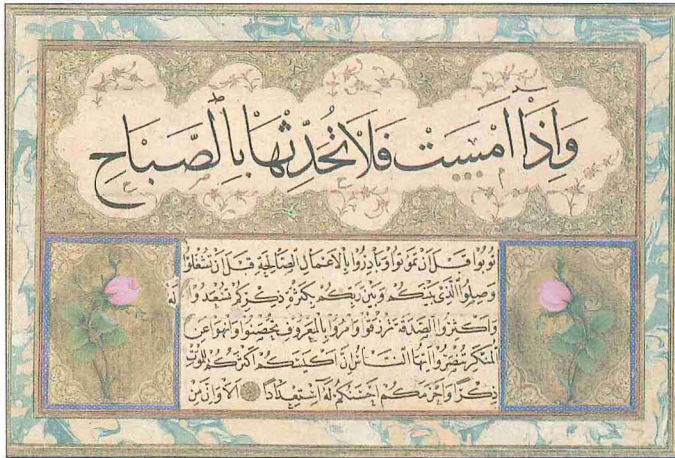 وَاِذَا اَمْسَيْتَ فَلَا تُحَدِّثْهَا بِالصَّبَاحِ
تُوبُوا قَبْلَ اَنْ تَمُوتُوا وَبَادِرُوا بِالْاَعْمَالِ الصَّالِحَةِ قَبْلَ اَنْ تُشْغَلُوا
وَصِلُوا الَّذِى بَيْنَكُمْ وَبَيْنَ رَبِّكُمْ بِكَثْرَةِ ذِكْرِكُمْ تَسْعَدُوا لَهُ
وَاَكْثِرُوا الصَّدَقَةَ تُرْزَقُوا وَاْمُرُوا بِالْمَعْرُوفِ تُخْصِبُوا وَانْهَوْا عَنِ
الْمُنْكَرِ تُنْصَرُوا اَيُّهَا النَّاسُ اِنَّ اَكْيَسَكُمْ اَكْثَرُكُمْ لِلْمَوْتِ
ذِكْرًا وَاَحْزَمَكُمْ اَحْسَنُكُمْ لَهُ اسْتِعْدَادًا اَلَا وَاِنَّ مِنْ